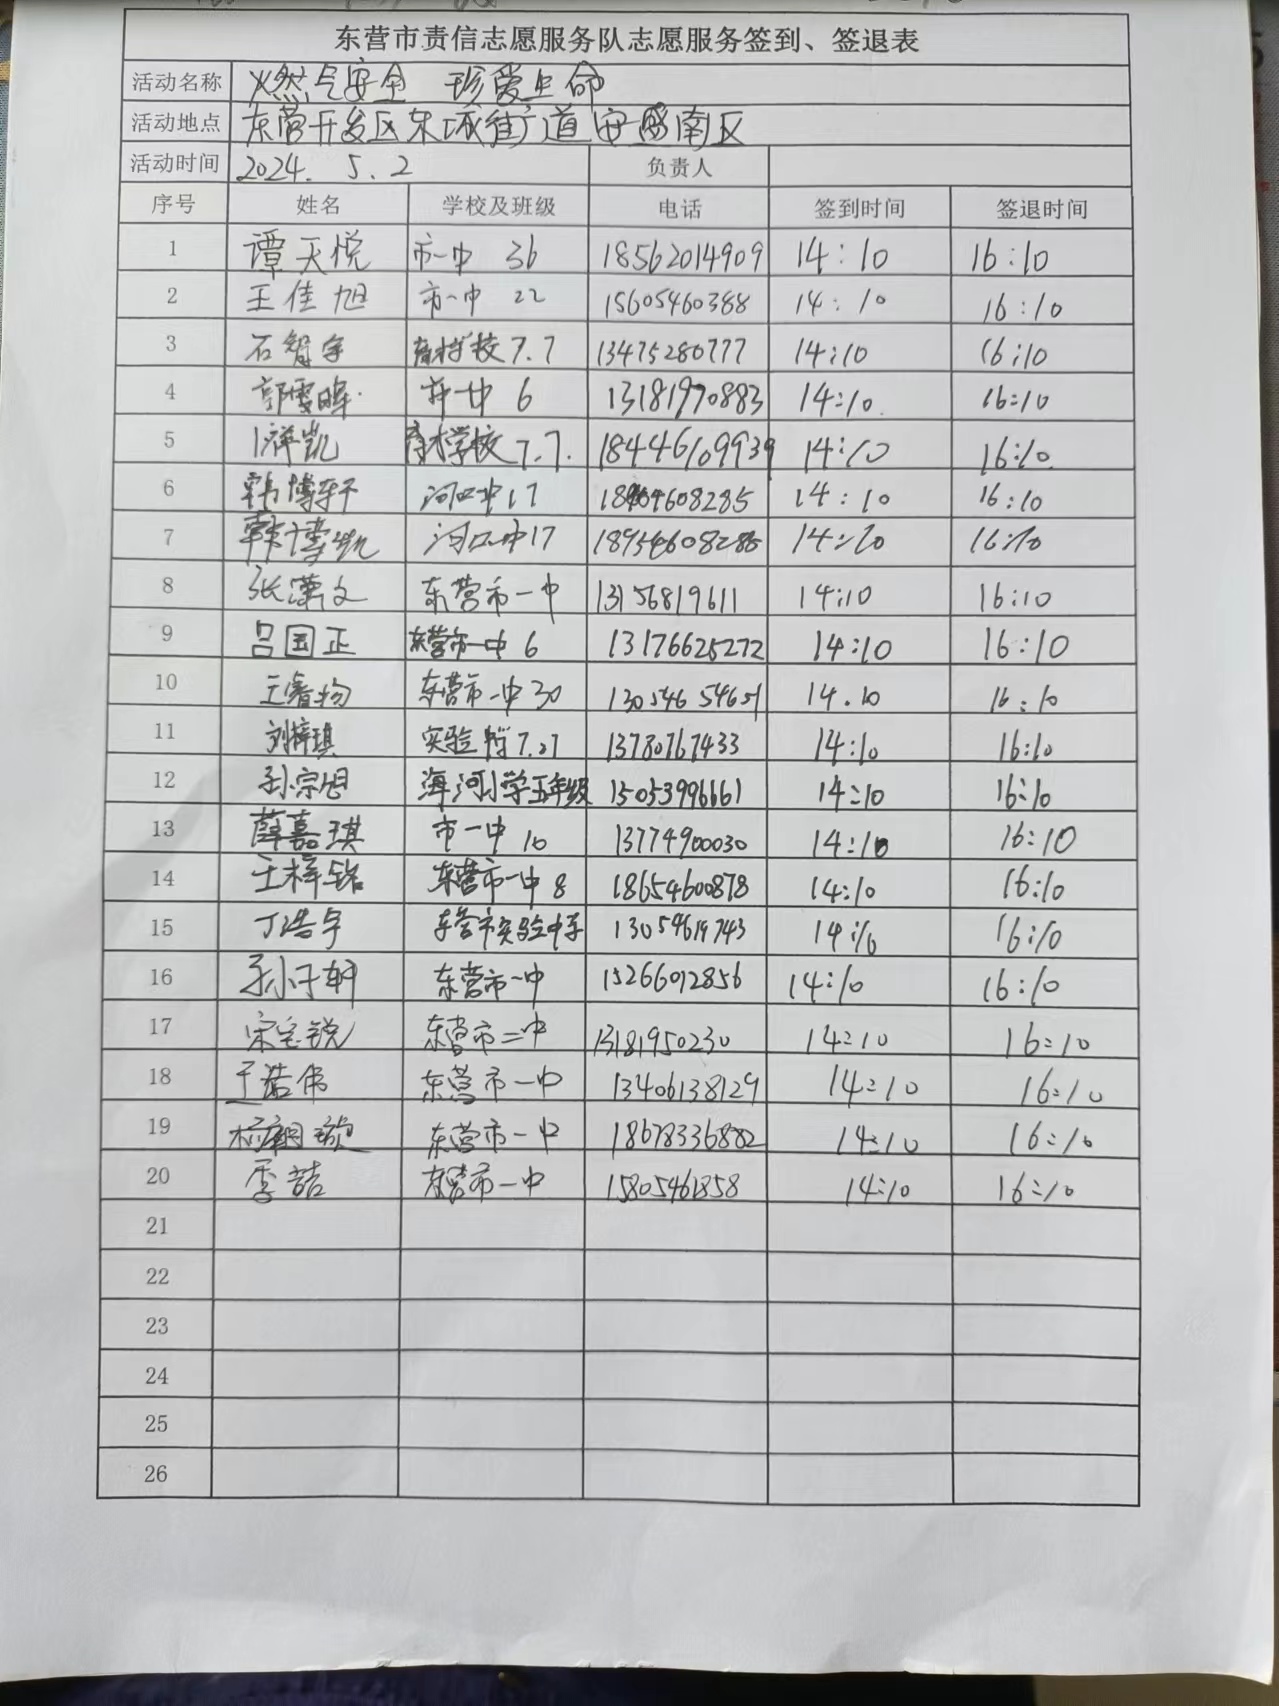 东营市责信志愿服务队志愿服务签到、签退表
活动名称 燃气安全 珍爱生命
活动地点 东营开发区东城街道安盛南区
活动时间 2024. 5. 2 负责人
序号 姓名 学校及班级 电话 签到时间 签退时间
1 谭天悦 市一中 36 18562014909 14:10 16:10
2 王佳旭 市一中 22 15605460388 14:10 16:10
3 石智宇 7.7 13475280777 14:10 16:10
4 6 13181970883 14:10 16:10
5 祥凯 育才学校 7.7. 18446109939 14:10 16:10
6 韩博轩 河口中17 14:10 16:10
7 韩博凯 河口中17 14:10 16:10
8 张潇文 东营市一中 13156819611 14:10 16:10
9 吕国正 东营市一中 6 13176625272 14:10 16:10
10 东营市一中 30 14.10 16:10
11 刘梓琪 实验 7.27 13780767433 14:10 16:10
12 孙宗旭 海河小学五年级 15053996661 14:10 16:10
13 薛嘉琪 市一中 10 13774900030 14:10 16:10
14 王梓铭 东营市一中 8 18654600878 14:10 16:10
15 丁浩宇 东营市实验中学 14:10 16:10
16 孙子轩 东营市一中 15266012856 14:10 16:10
17 东营市二中 13181950230 14:10 16:10
18 王浩伟 东营市一中 13406138129 14:10 16:10
19 东营市一中 18678336882 14:10 16:10
20 李喆 东营市一中 15805461858 14:10 16:10
21
22
23
24
25
26